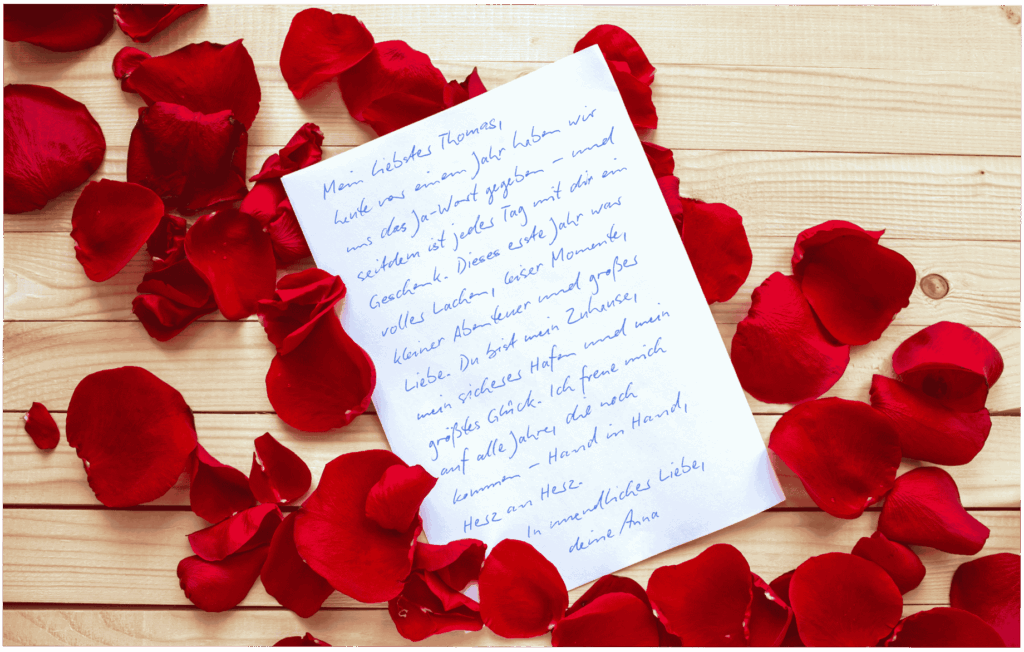 Mein liebster Thomas,
heute vor einem Jahr haben wir
uns das Ja-Wort gegeben – und
seitdem ist jeder Tag mit dir ein
Geschenk. Dieses erste Jahr war
voller Lachen, leiser Momente,
kleiner Abenteuer und großer
Liebe. Du bist mein Zuhause,
mein sicherer Hafen und mein
größtes Glück. Ich freue mich
auf alle Jahre, die noch
kommen – Hand in Hand,
Herz an Herz.
In unendlicher Liebe,
deine Anna